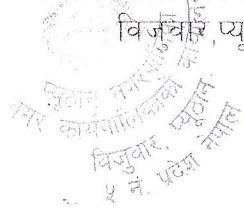 विजुवार, प्यू
प्यूठान नगरपालिका
नगर कार्यपालिकाको का
विजुवार, प्यूठान
५ नं. प्रदेश नेपाल